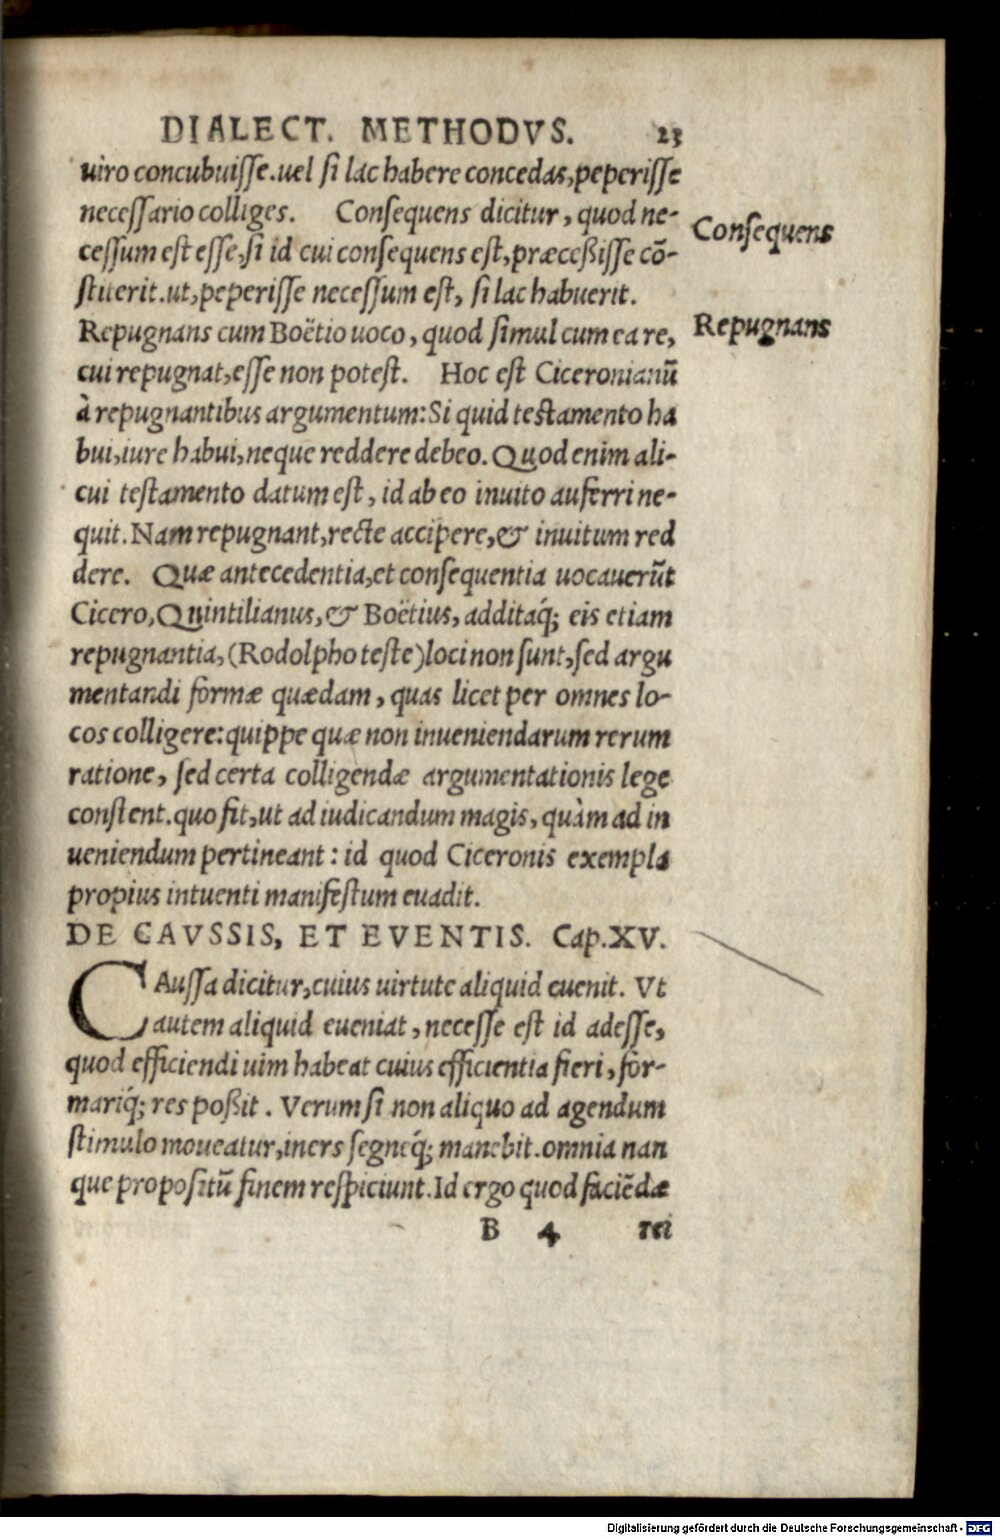 DIALECT. METHODVS. 23
uiro concubuisse. uel si lac habere concedas, peperisse
necessario colliges. Consequens dicitur, quod ne-
Consequens
cessum est esse, si id cui consequens est, præceßisse cõ-
stiterit. ut, peperisse necessum est, si lac habuerit.
Repugnans cum Boëtio uoco, quod simul cum ea re,
Repugnans
cui repugnat, esse non potest. Hoc est Ciceronianũ
à repugnantibus argumentum: Si quid testamento ha
bui, iure habui, neque reddere debeo. Quod enim ali-
cui testamento datum est, id ab eo inuito auferri ne-
quit. Nam repugnant, recte accipere, & inuitum red
dere. Quæ antecedentia, et consequentia uocauerũt
Cicero, Quintilianus, & Boëtius, additaq́; eis etiam
repugnantia, (Rodolpho teste) loci non sunt, sed argu
mentandi formæ quædam, quas licet per omnes lo-
cos colligere: quippe quæ non inueniendarum rerum
ratione, sed certa colligendæ argumentationis lege
constent. quo fit, ut ad iudicandum magis, quàm ad in
ueniendum pertineant: id quod Ciceronis exempla
propius intuenti manifestum euadit.
DE CAVSSIS, ET EVENTIS. Cap. XV.
CAussa dicitur, cuius uirtute aliquid euenit. Vt
autem aliquid eueniat, necesse est id adesse,
quod efficiendi uim habeat cuius efficientia fieri, for-
mariq́; res poßit. Verum si non aliquo ad agendum
stimulo moueatur, iners segneq́; manebit. omnia nan
que propositũ finem respiciunt. Id ergo quod faciẽdæ
B 4 rei
Digitalisierung gefördert durch die Deutsche Forschungsgemeinschaft - DFG